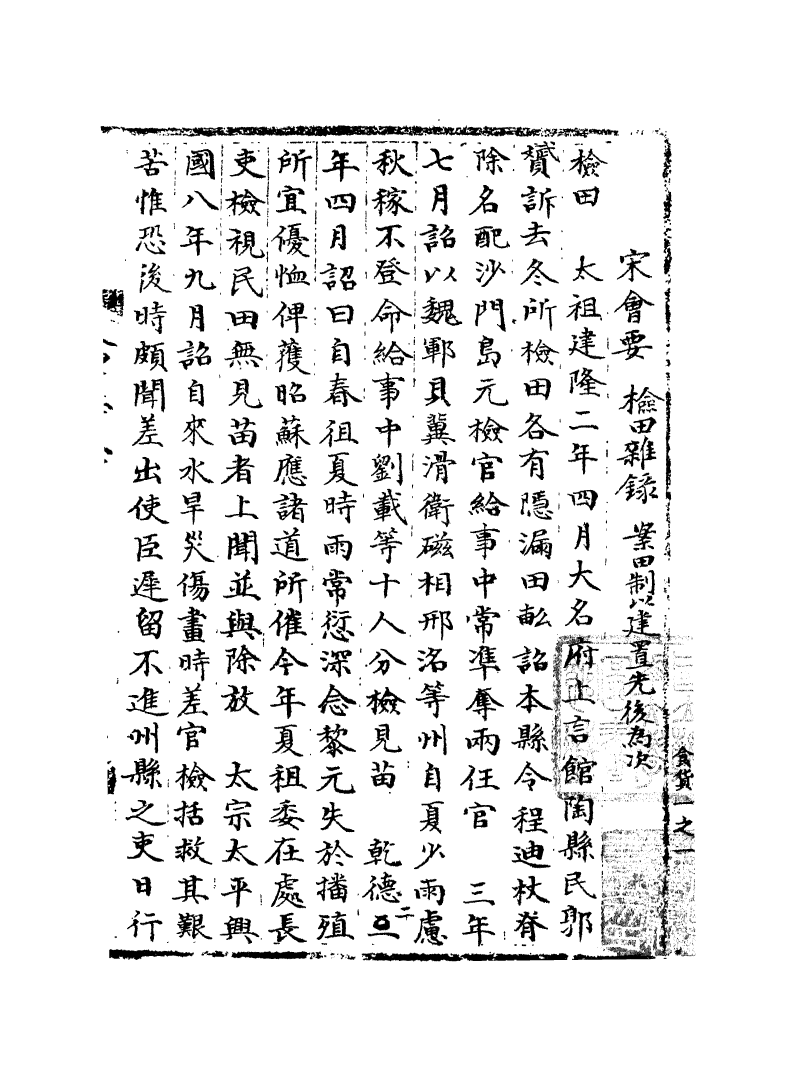 食貨一之一
宋會要　檢田雜錄　案田制以建置先後為次
檢田　太祖建隆二年四月大名府上言館陶縣民郭
贇訴去冬所檢田各有隱漏田畝詔本縣令程迪杖脊
除名配沙門島元檢官給事中常準奪兩任官　三年
七月詔以魏鄆貝冀滑衛磁相邢洺等州自夏少雨慮
秋稼不登命給事中劉載等十人分檢見苗　乾德二
年四月詔曰自春徂夏時雨常愆深念黎元失於播殖
所宜優恤俾獲昭蘇應諸道所催今年夏租委在處長
吏檢視民田無見苗者上聞並與除放　太宗太平興
國八年九月詔自來水旱災傷畫時差官檢括救其艱
苦惟恐後時頗聞差出使臣遲留不進州縣之吏日行